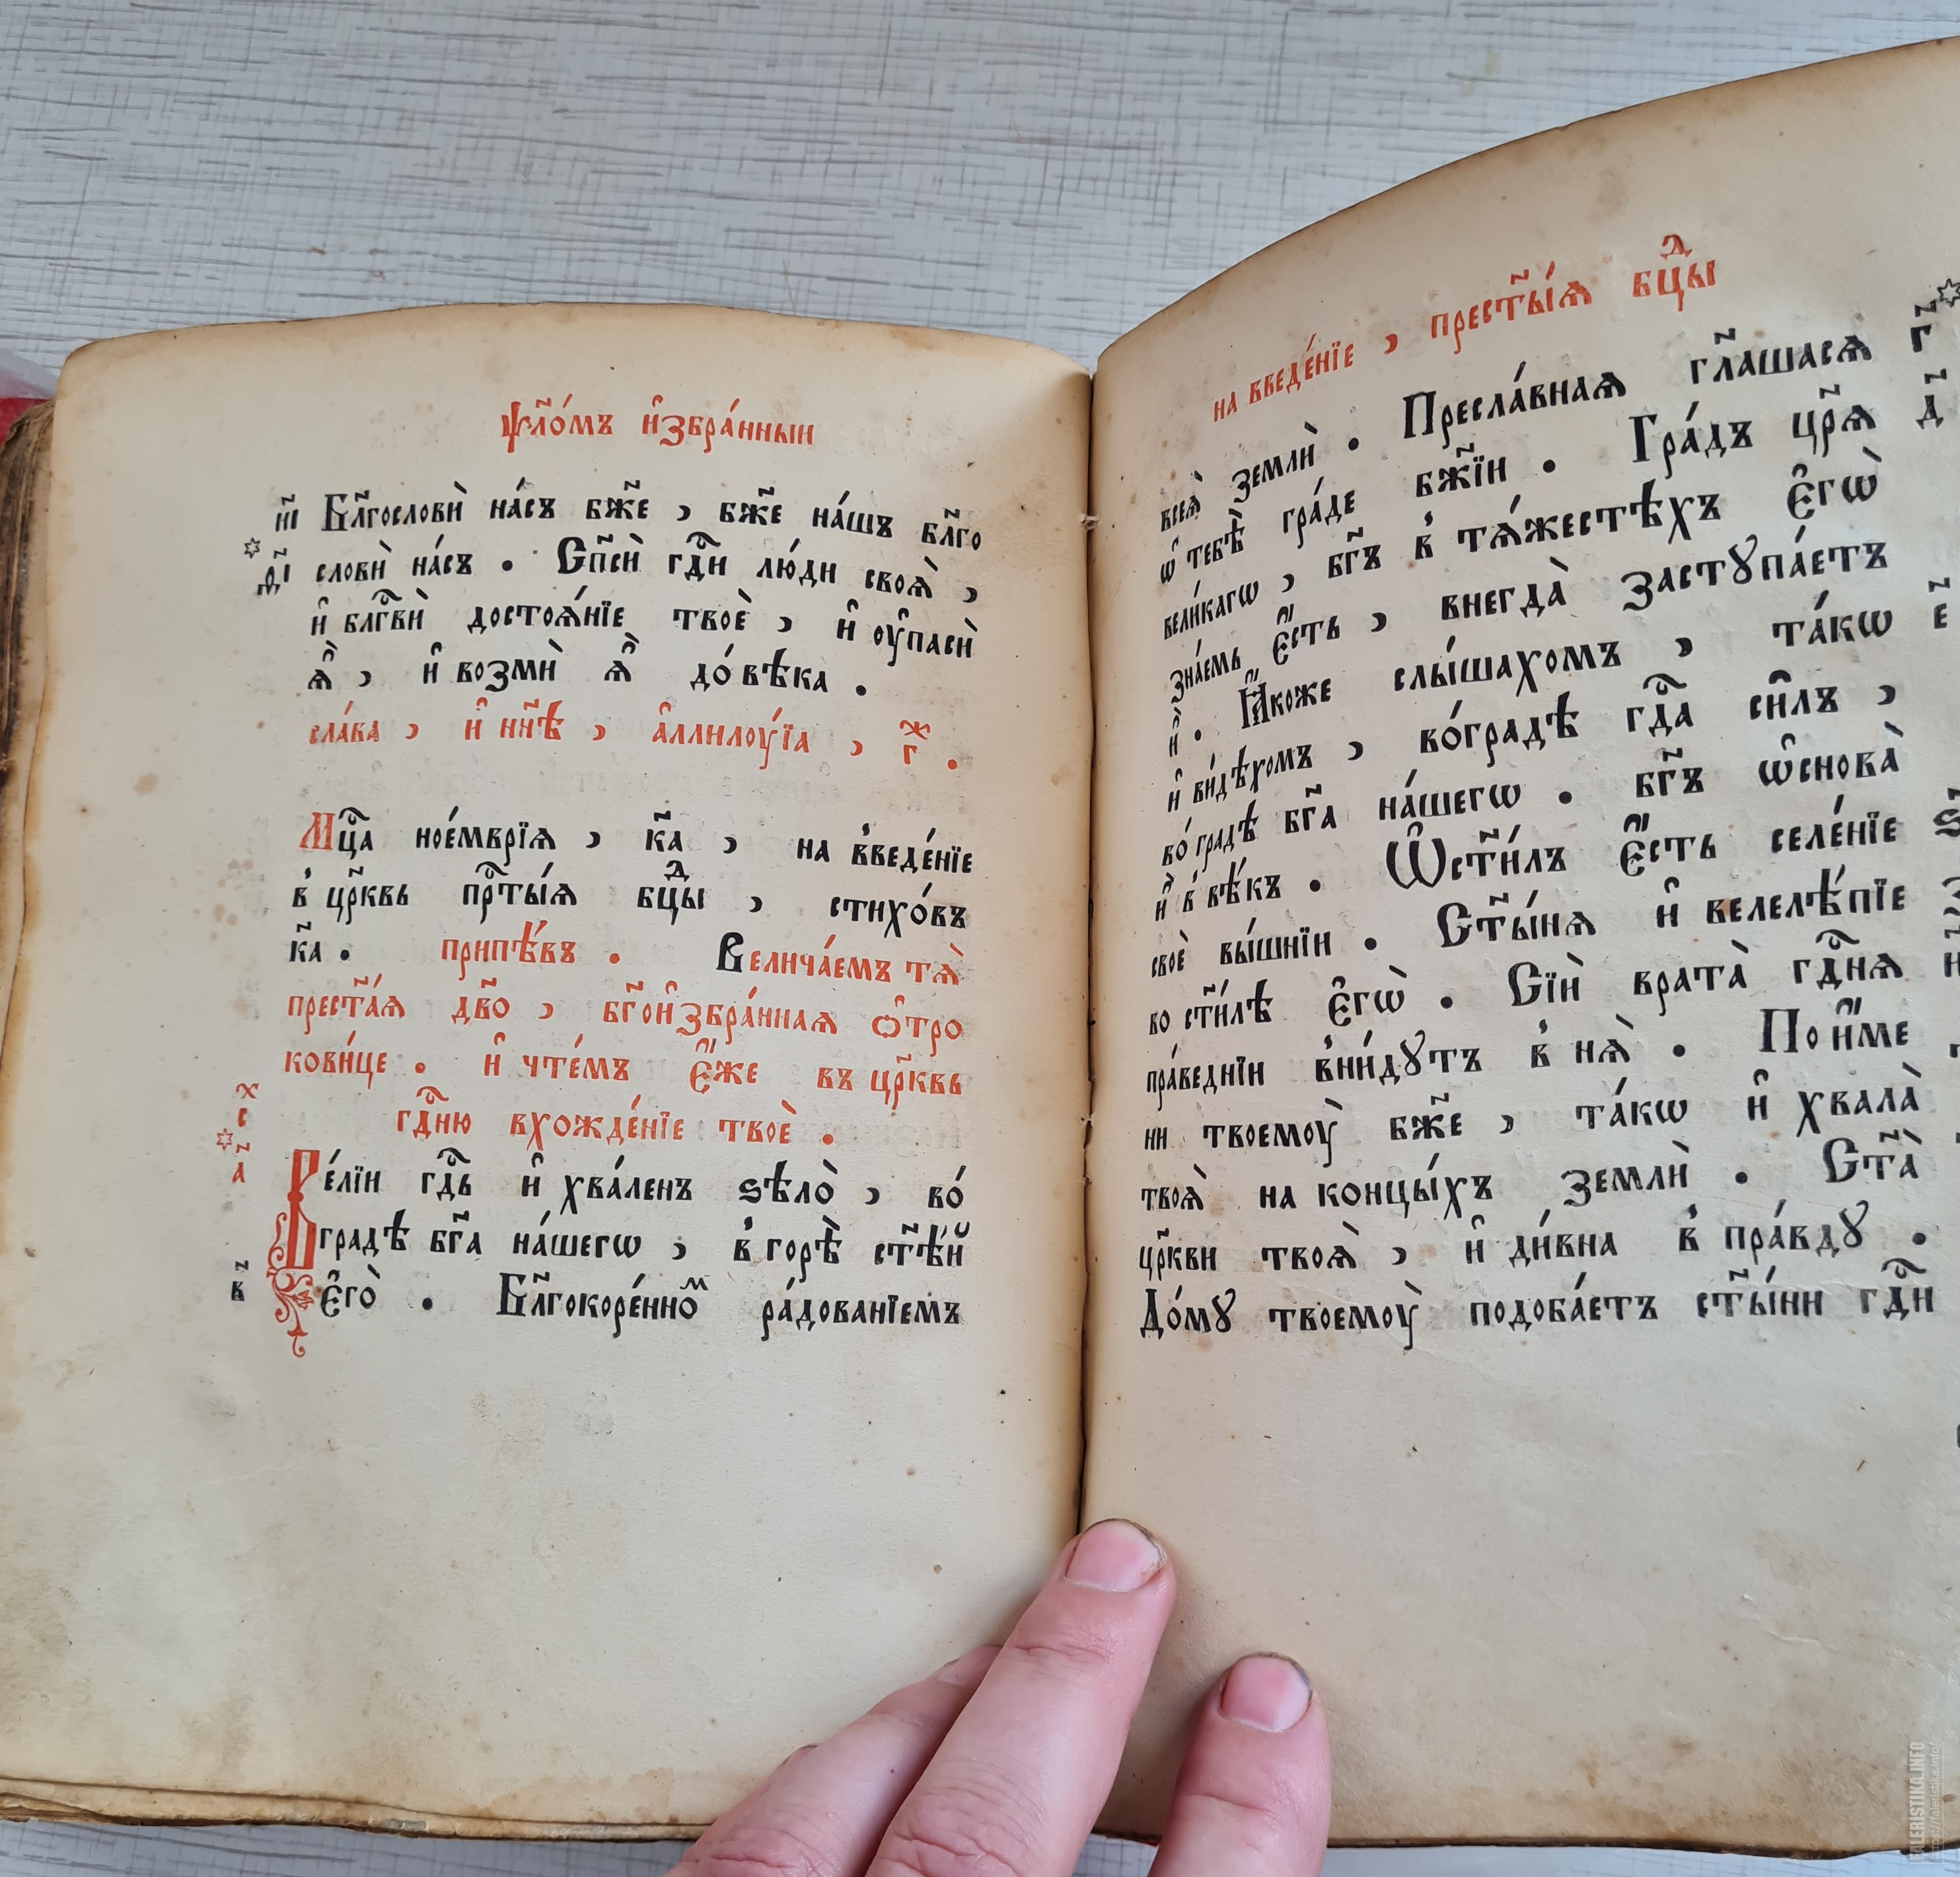 ѱл҃о́мъ и҆збра́нныи
н҃і Бл҃гословѝ на́съ бж҃е , бж҃е на́шъ бл҃го
д҃і словѝ на́съ . Сп҃сѝ гдⷭ҇и лю́ди своѧ̀ ,
и҆ блгⷭ҇вѝ достоѧ́нїе твоѐ , и҆ оу҆пасѝ
ѧ҆̀ , и҆ возмѝ ѧ҆̀ до́ вѣка .
сла́ва , и҆ нн҃ѣ , а҆ллилоу́їа , г҃ ⷤ .
Мцⷭ҇а ное́мврїѧ , к҃а , на в̾веде́нїе
в̾ цр҃квь прⷭ҇ты́ѧ бцⷣы , стихо́въ
к҃а . припѣ́въ . Велича́емъ тѧ̀
прест҃а́ѧ дв҃о , бг҃ои҆збра́ннаѧ ѻ҆тро
кови́це . и҆ чте́мъ є҆́же въ цр҃квь
гдⷭ҇ню вхожде́нїе твоѐ .
с ⷯ
а҃ Ве́лїи гдⷭ҇ь и҆ хва́ленъ ѕѣло̀ , во́
градѣ бг҃а на́шегѡ , в̾ горѣ̀ ст҃ѣ́й
в҃ є҆го̀ . Бл҃гокоре́нноⷨ ра́дованїемъ
на введе́нїе , прест҃ы́ѧ бцⷣы
всеѧ̀ землѝ . Пресла́внаѧ гл҃ашасѧ г҃
ѡ҆ тебѣ̀ гра́де бж҃їи . Гра́дъ цр҃ѧ д҃
вели́кагѡ , бг҃ъ в̾ тѧ́жестѣхъ є҆гѡ̀
зна́емь є҆́сть , внегда̀ застꙋпа́етъ
и҆̀ . Ꙗ҆́коже слы́шахомъ , та́кѡ е҃
и҆ ви́дѣхомъ , во́градѣ гдⷭ҇а си́лъ ,
во́ градѣ бг҃а на́шегѡ . бг҃ъ ѡ҆снова̀
и҆̀ в̾ вѣ́къ . Ѡ҆ст҃и́лъ є҆́сть селе́нїе ѕ
своѐ вы́шнїи . Ст҃ы́нѧ и҆ велелѣ́пїе
во ст҃и́лѣ є҆гѡ̀ . Сїѝ врата̀ гдⷭ҇нѧ
пра́веднїи в̾ни́дꙋтъ в̾ нѧ̀ . По и҆́ме
ни твоемоу̀ бж҃е , та́кѡ и҆ хвала̀
твоѧ̀ на концы́хъ землѝ . Ст҃а̀
цр҃кви твоѧ̀ , и҆ ди́вна в̾ пра́вдꙋ .
До́мꙋ твоемоу̀ подоба́етъ ст҃ы́ни гдⷭ҇и
FALERISTIKA.INFO
https://faleristika.info/